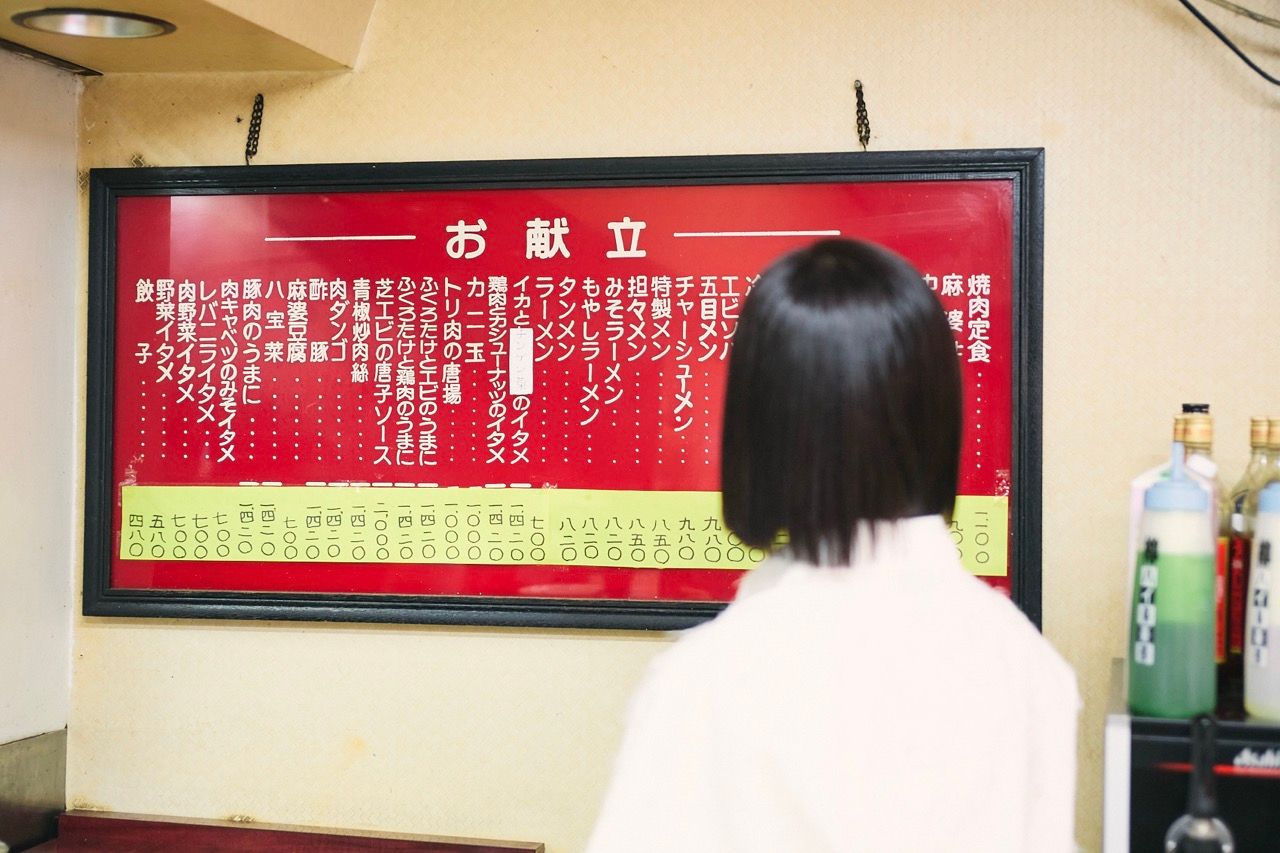 お献立
焼肉定食 一、一〇〇
麻婆
五目メン
チャーシューメン 九八〇
特製メン 九八〇
担々メン 八五〇
みそラーメン 八五〇
もやしラーメン 八二〇
タンメン 八二〇
ラーメン 七〇〇
イカと のイタメ 一、四二〇
鶏肉とカシューナッツのイタメ 一、四二〇
カニ玉 一、〇〇〇
トリ肉の唐揚 一、〇〇〇
ふくろたけとエビのうまに 一、四二〇
ふくろたけと鶏肉のうまに 一、四二〇
芝エビの唐子ソース 二、〇〇〇
青椒炒肉絲 一、四二〇
肉ダンゴ 一、四二〇
酢豚 一、四二〇
麻婆豆腐 七〇〇
八宝菜 一、四二〇
豚肉のうまに 一、四二〇
肉キャベツのみそイタメ 七〇〇
レバニライタメ 七〇〇
肉野菜イタメ 七〇〇
野菜イタメ 五八〇
餃子 四八〇